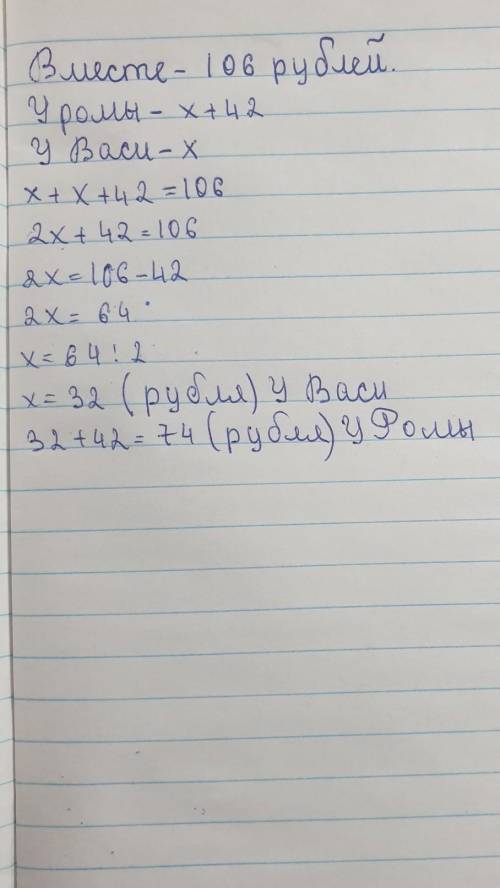 Вместе - 106 рублей.
У ромы - х+42
У Васи - х
х+х+42=106
2х+42=106
2х=106-42
2х= 64
х= 64:2
х= 32 (рубля) У Васи
32+42= 74 (рубля) У Ромы